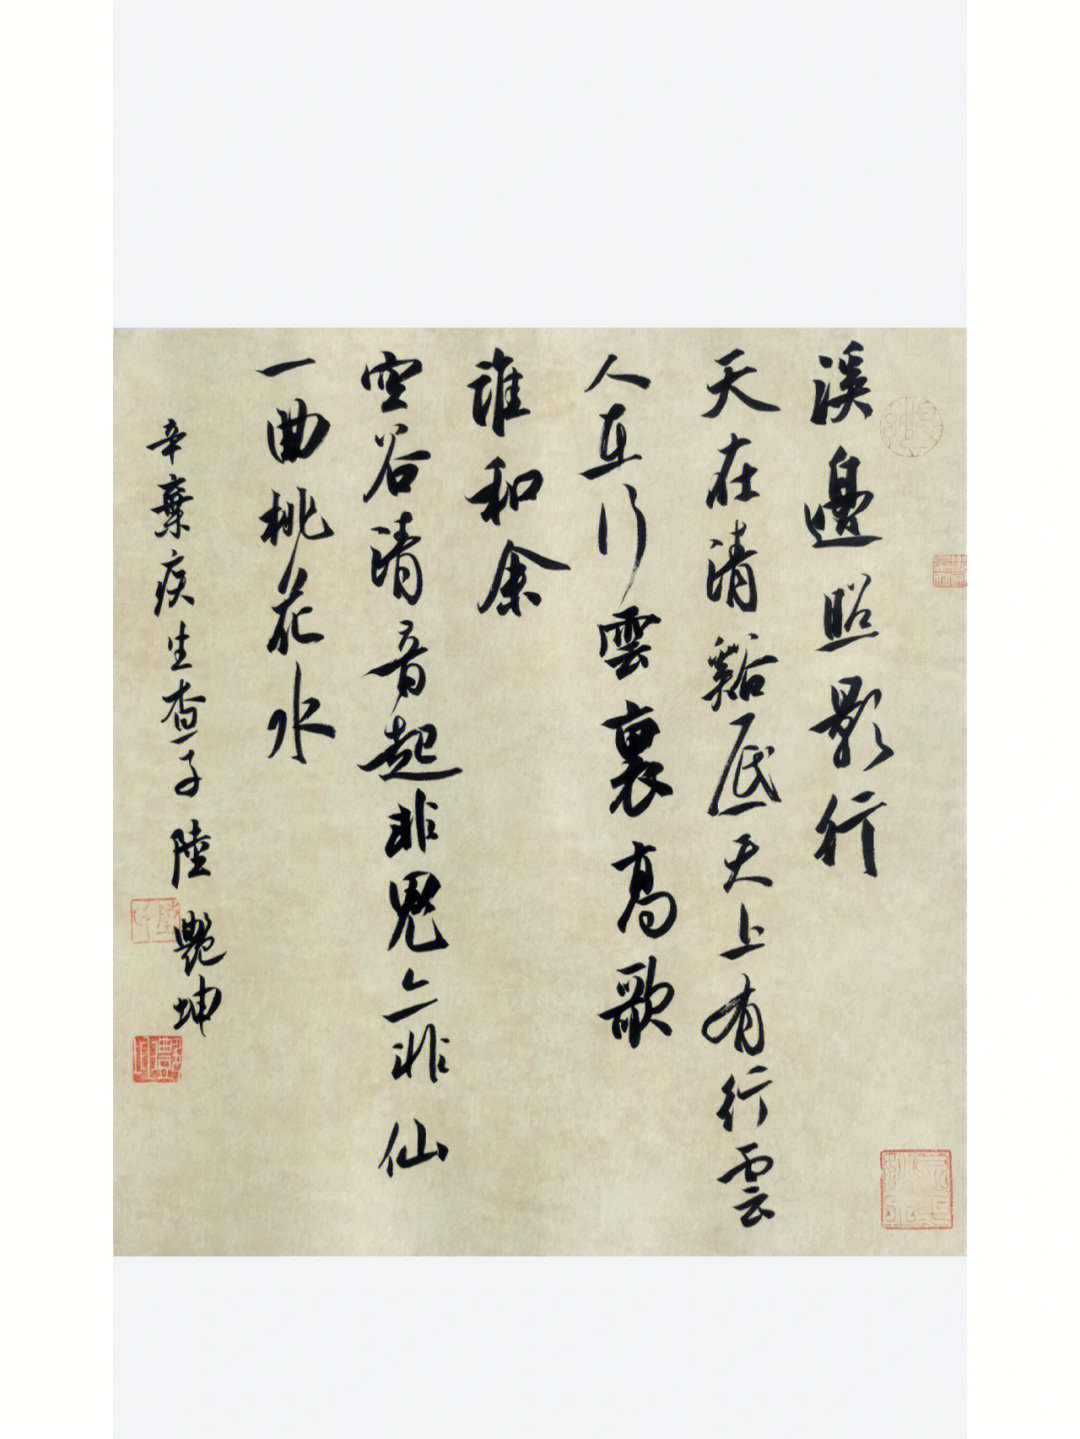 溪邊照影行
天在清谿底天上有行雲
人在行雲裏高歌
誰和余
空谷清音起非鬼亦非仙
一曲桃花水
辛棄疾生查子 陸艷坤